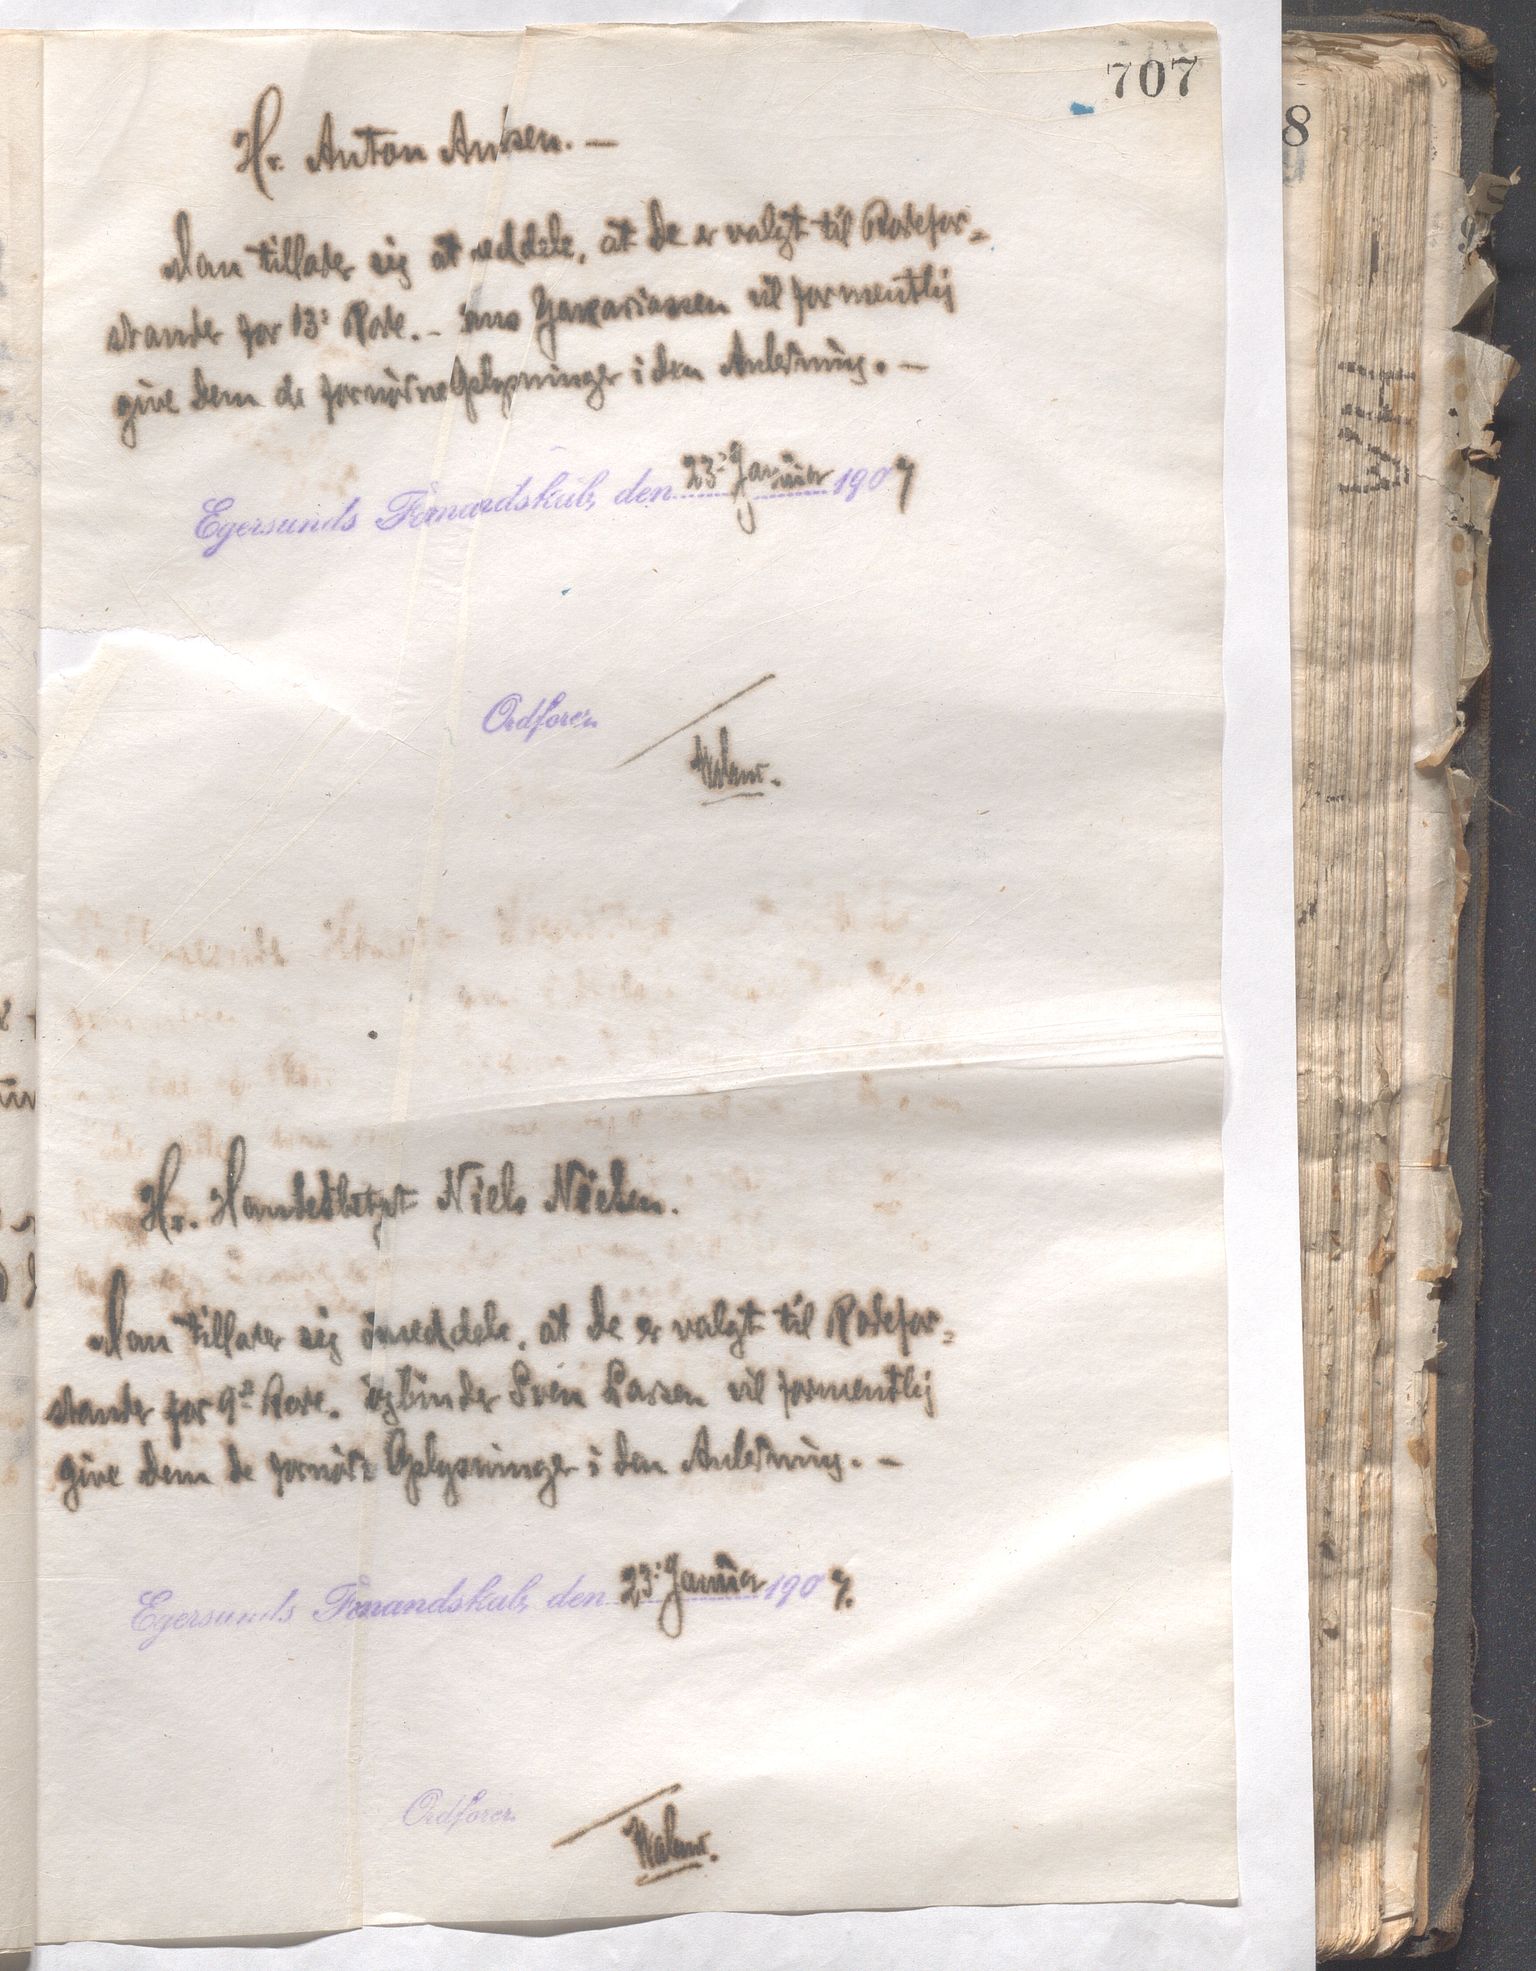 707
Hr. Anton Aulsen. —
Man tillader sig at meddele, at De er valgt til Rodefor=
stander for 13: Rode. – Zakariassen vil formentlig
give Dem de fornødne Oplysninger i den Anledning. —
Egersunds Formandskab, den 23: Januar 1907
Ordfører
Hr. Handelsbetjent Niels Nielsen.
Man tillader sig at meddele, at De er valgt til Rodefor=
stander for 9de Rode. Sven Larsen vil formentlig
give Dem de fornødne Oplysninger i den Anledning. —
Egersunds Formandskab, den 23: Januar 1907.
Ordfører